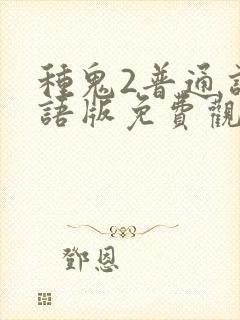 種鬼2普通
語版免費觀
鄧恩